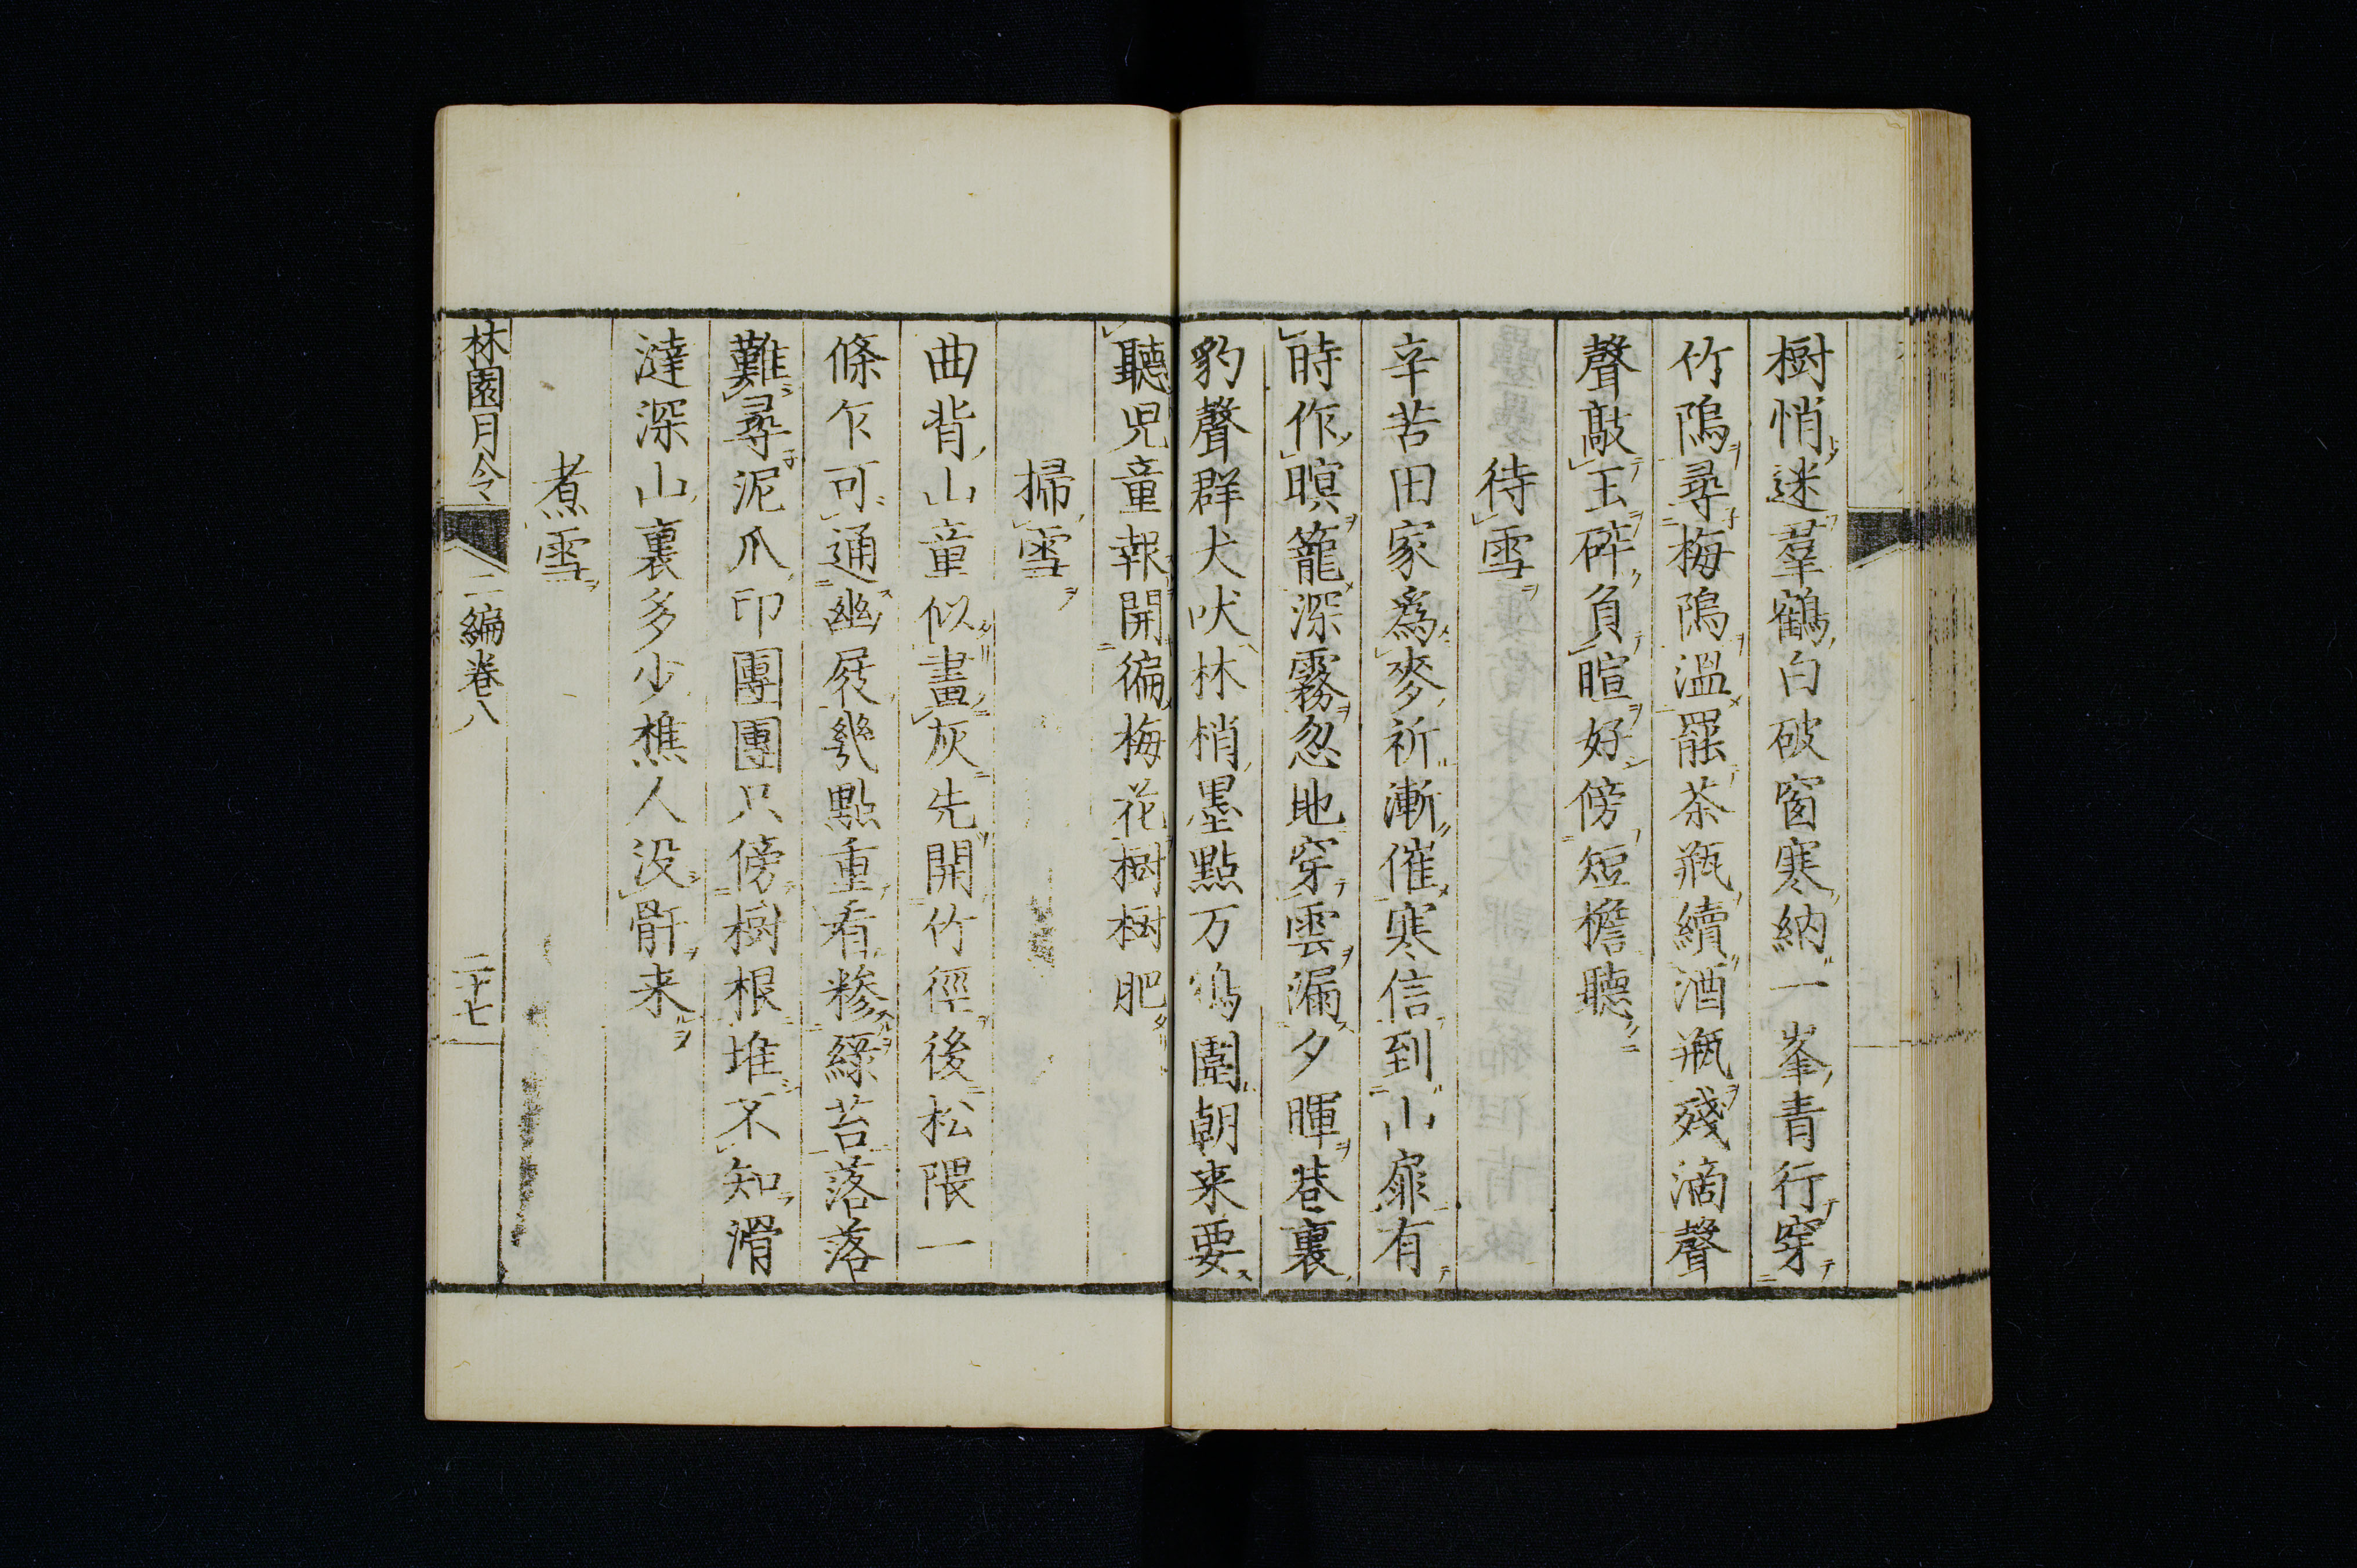 樹悄迷羣鶴白破窗寒納一峯青行穿
竹塢尋梅塢溫罷茶瓶續酒瓶殘滴聲
聲敲玉碎負暄好傍短檐聽
待雪
辛苦田家爲麥祈漸催寒信到山扉有
時作暝籠深霧忽地穿雲漏夕暉巷裏
豹聲群犬吠林梢墨點万鴉圍朝来要
聽児童報開徧梅花樹樹肥
掃雪
曲背山童似畫灰先開竹徑後松隈一
條乍可通幽屐幾點重看糝綠苔落落
難尋泥爪印團團只傍樹根堆不知滑
澾深山裏多少樵人没骭来
煮雪
林園月令 二編巻八 二十七